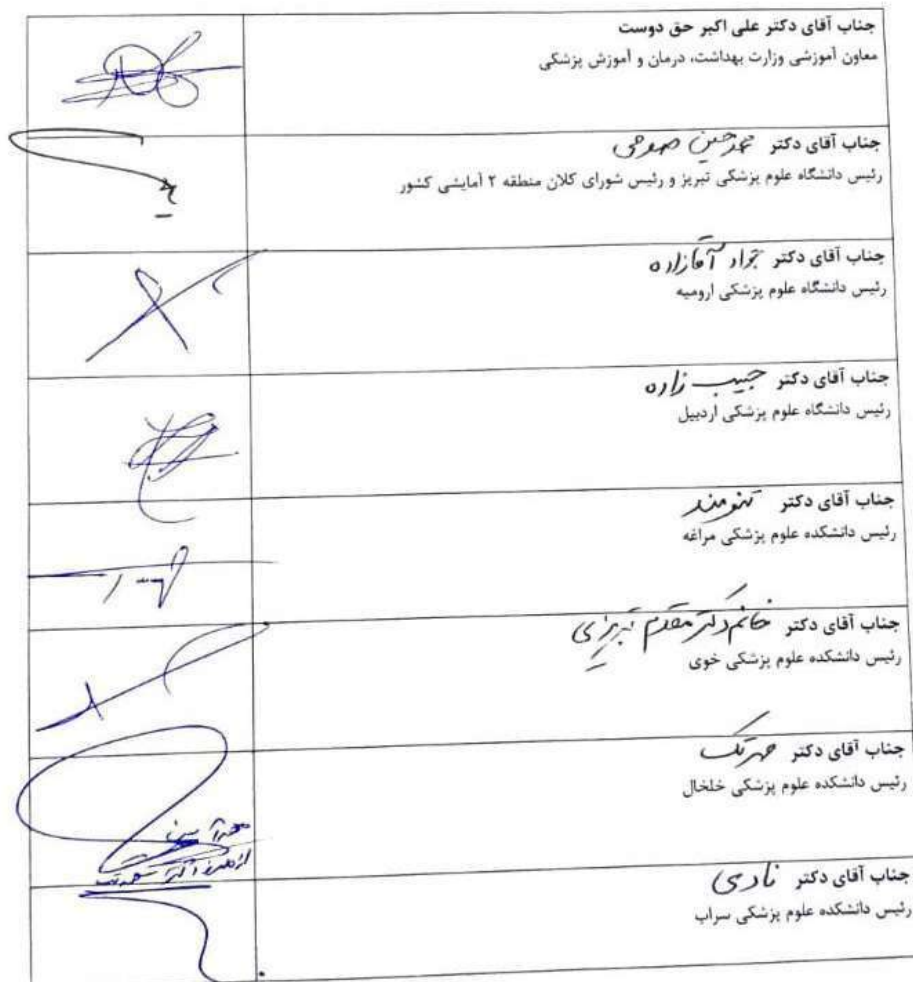 جناب آقای دکتر علی اکبر حق دوست
معاون آموزشی وزارت بهداشت، درمان و آموزش پزشکی
جناب آقای دکتر محمدحسین صومی
رئیس دانشگاه علوم پزشکی تبریز و رئیس شورای کلان منطقه ۲ آمایشی کشور
جناب آقای دکتر جواد آقازاده
رئیس دانشگاه علوم پزشکی ارومیه
جناب آقای دکتر حبیب زاده
رئیس دانشگاه علوم پزشکی اردبیل
جناب آقای دکتر تنومند
رئیس دانشکده علوم پزشکی مراغه
جناب آقای دکتر خانم دکتر مقدم تبریزی
رئیس دانشکده علوم پزشکی خوی
جناب آقای دکتر
رئیس دانشکده علوم پزشکی خلخال
جناب آقای دکتر نادری
رئیس دانشکده علوم پزشکی سراب